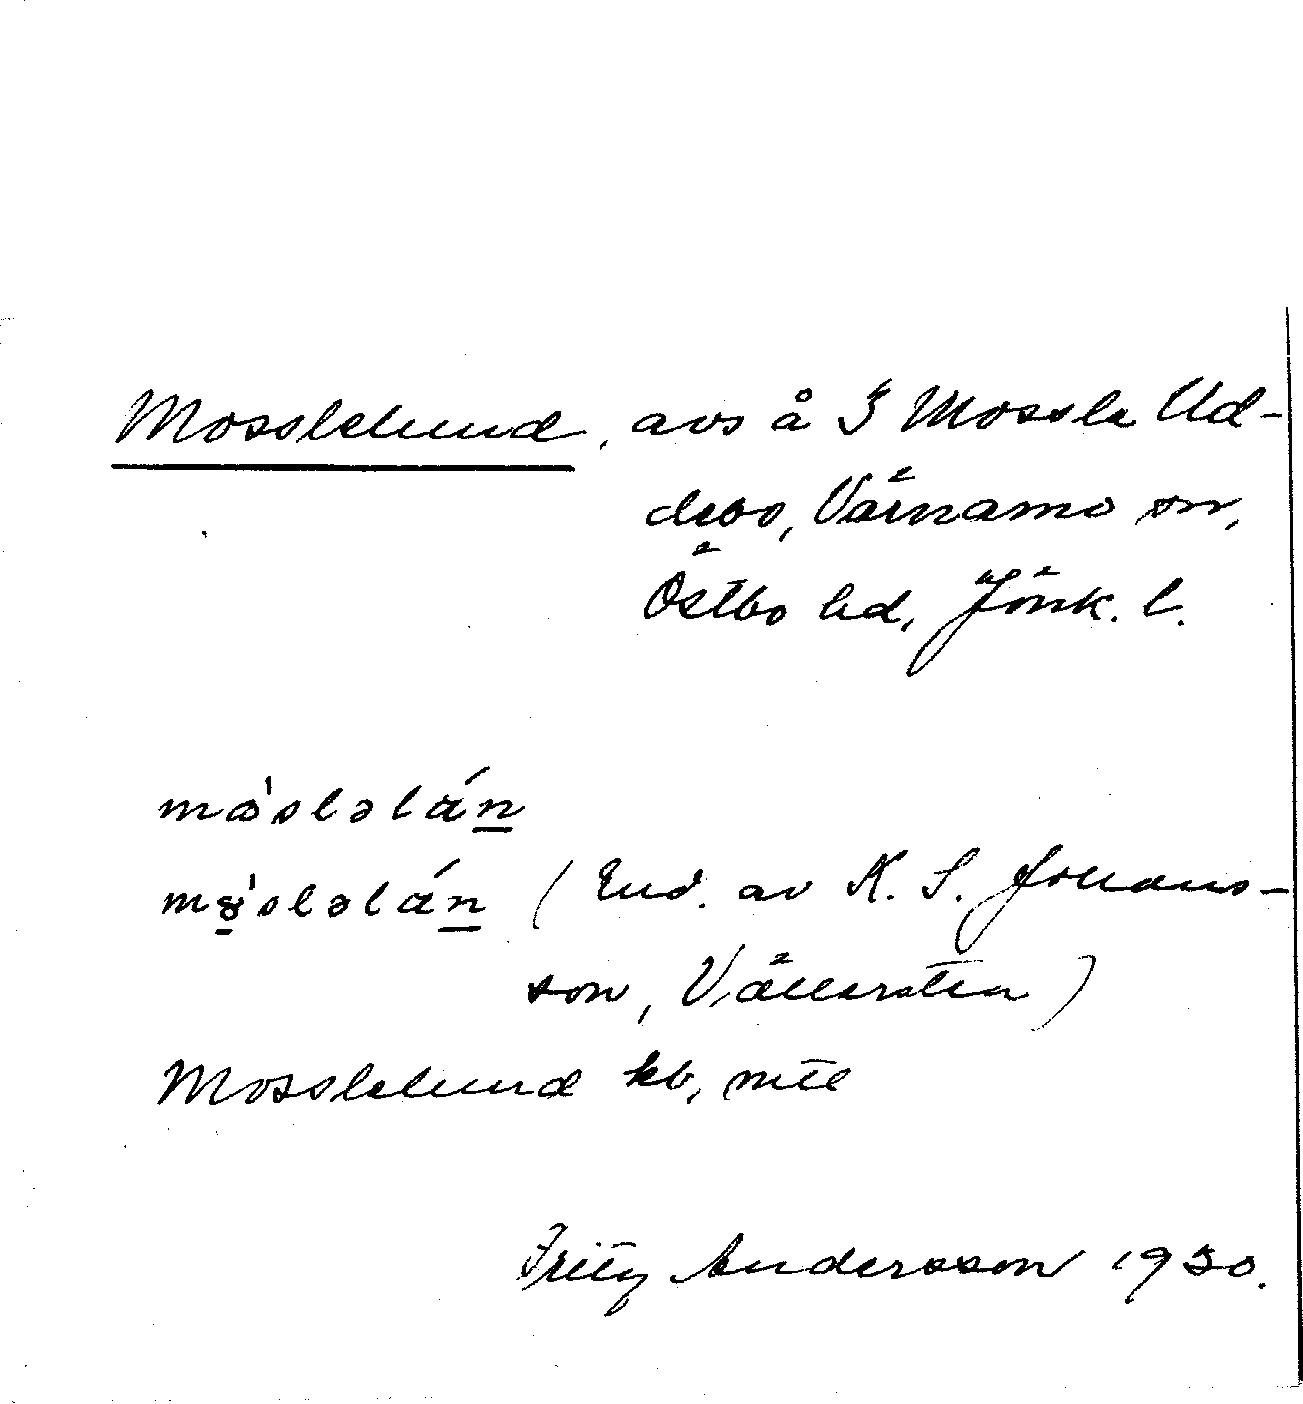 Mosslelund, avs å 3 Mossle Ud-
debo, Värnamo sn,
Östbo hd, Jönk. l.
mòsləlán
mòsləlán (End. av K. S. Johans-
son, Vällersten)
Mosslelund kb, mtl
Fritz Andersson 1930.